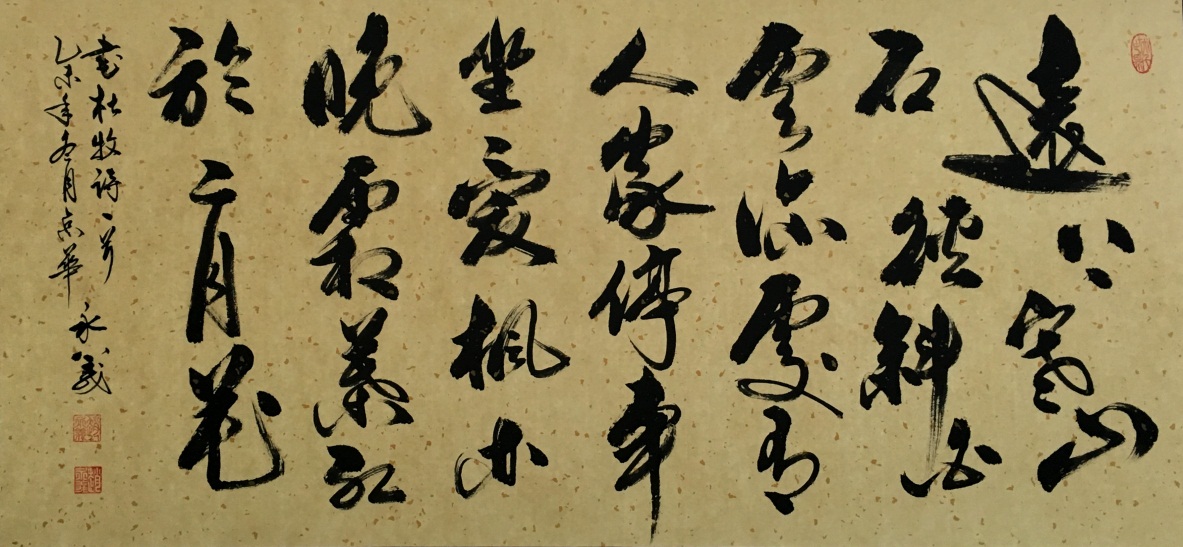 遠上寒山
石徑斜白
雲深處有
人家停車
坐愛楓林
晚霜葉紅
於二月花
書杜牧詩一首
乙未年冬月京華
永義